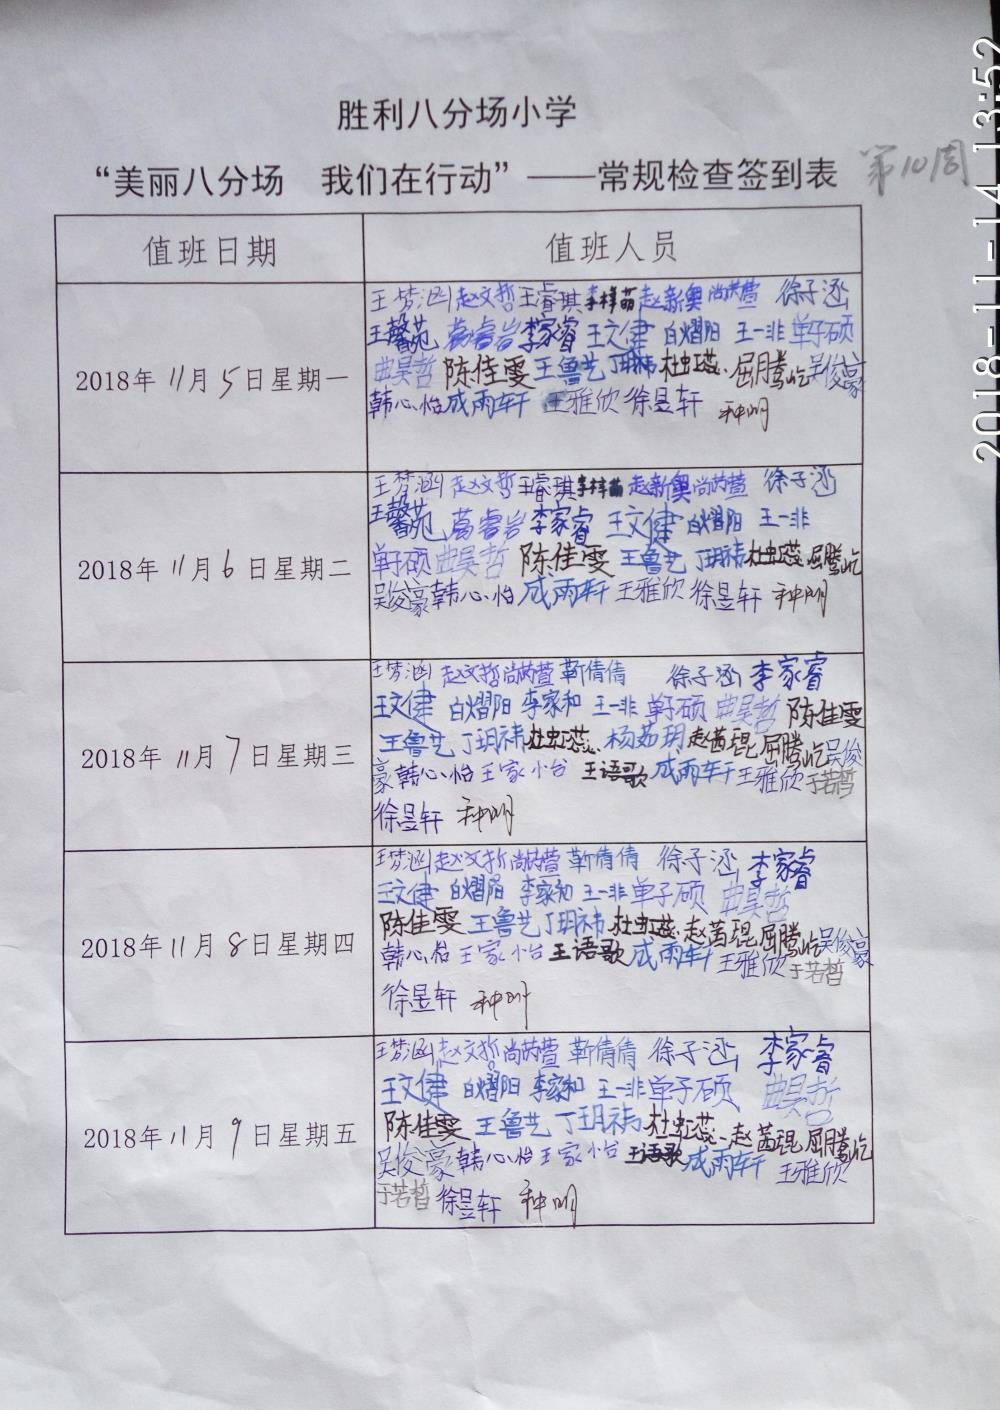 胜利八分场小学
“美丽八分场 我们在行动”——常规检查签到表 第10周
2018-11-14 13:52
值班日期 值班人员
2018年11月5日星期一
王梦涵赵文哲王睿琪李梓萌赵新奥尚芮萱 徐子涵
王馨苑葛睿岩李家睿 王文健 白熠阳 王一非 单子硕
曲昊哲 陈佳雯王鲁艺丁玥祎杜虹蕊屈腾屹吴俊豪
韩心怡成雨轩 王雅欣徐昱轩 种明
2018年11月6日星期二
王梦涵 赵文哲王睿琪李梓萌 赵新奥尚芮萱 徐子涵
王馨苑 葛睿岩 李家睿 王文健 白熠阳 王一非
单子硕曲昊哲 陈佳雯 王鲁艺 丁玥祎杜虹蕊屈腾屹
吴俊豪韩心怡 成雨轩 王雅欣 徐昱轩 种明
2018年11月7日星期三
王梦涵 赵文哲尚芮萱 靳倩倩 徐子涵 李家睿
王文健 白熠阳 李家和 王一非 单子硕 曲昊哲 陈佳雯
王鲁艺 丁玥祎杜虹蕊 杨茹玥赵茜琨 屈腾屹吴俊
豪 韩心怡 王家怡 王语歌 成雨轩王雅欣于若哲
徐昱轩 种明
2018年11月8日星期四
王梦涵赵文哲尚芮萱 靳倩倩 徐子涵 李家睿
王文健 白熠阳 李家和 王一非单子硕 曲昊哲
陈佳雯 王鲁艺丁玥祎杜虹蕊 赵茜琨屈腾屹吴俊豪
韩心怡 王家怡 王语歌 成雨轩 王雅欣于若哲
徐昱轩 种明
2018年11月9日星期五
王梦涵赵文哲尚芮萱 靳倩倩 徐子涵 李家睿
王文健 白熠阳 李家和 王一非单子硕 曲昊哲
陈佳雯 王鲁艺 丁玥祎 杜虹蕊 赵茜琨屈腾屹
吴俊豪韩心怡王家怡 王语歌成雨轩 王雅欣
于若哲 徐昱轩 种明